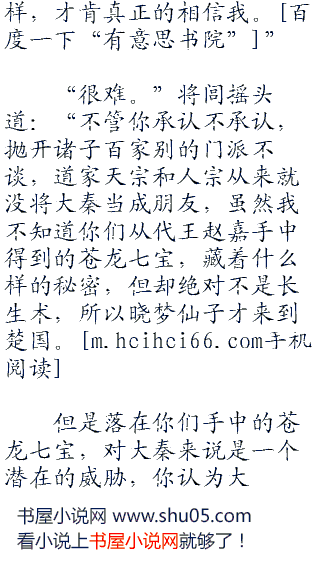 样，才肯真正的相信我。[百
度一下“有意思书院”]”
“很难。”将闾摇头
道：“不管你承认不承认，
抛开诸子百家别的门派不
谈，道家天宗和人宗从来就
没将大秦当成朋友，虽然我
不知道你们从代王赵嘉手中
得到的苍龙七宝，藏着什么
样的秘密，但却绝对不是长
生术，所以晓梦仙子才来到
楚国。[m.hcihci66.com手机
阅读]
但是落在你们手中的苍
龙七宝，对大秦来说是一个
潜在的威胁，你认为大
书屋小说网 www.shu05.com
看小说上书屋小说网就够了！